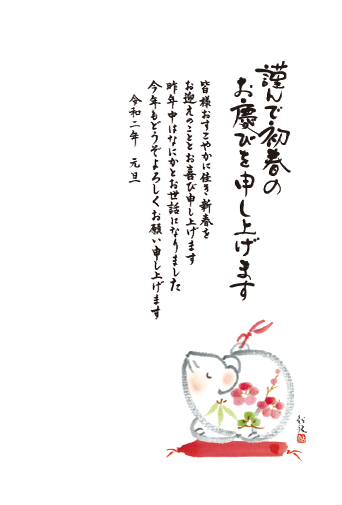 謹んで初春の
お慶びを申し上げます
皆様おすこやかに佳き新春を
お迎えのこととお喜び申し上げます
昨年中はなにかとお世話になりました
今年もどうぞよろしくお願い申し上げます
令和二年 元旦